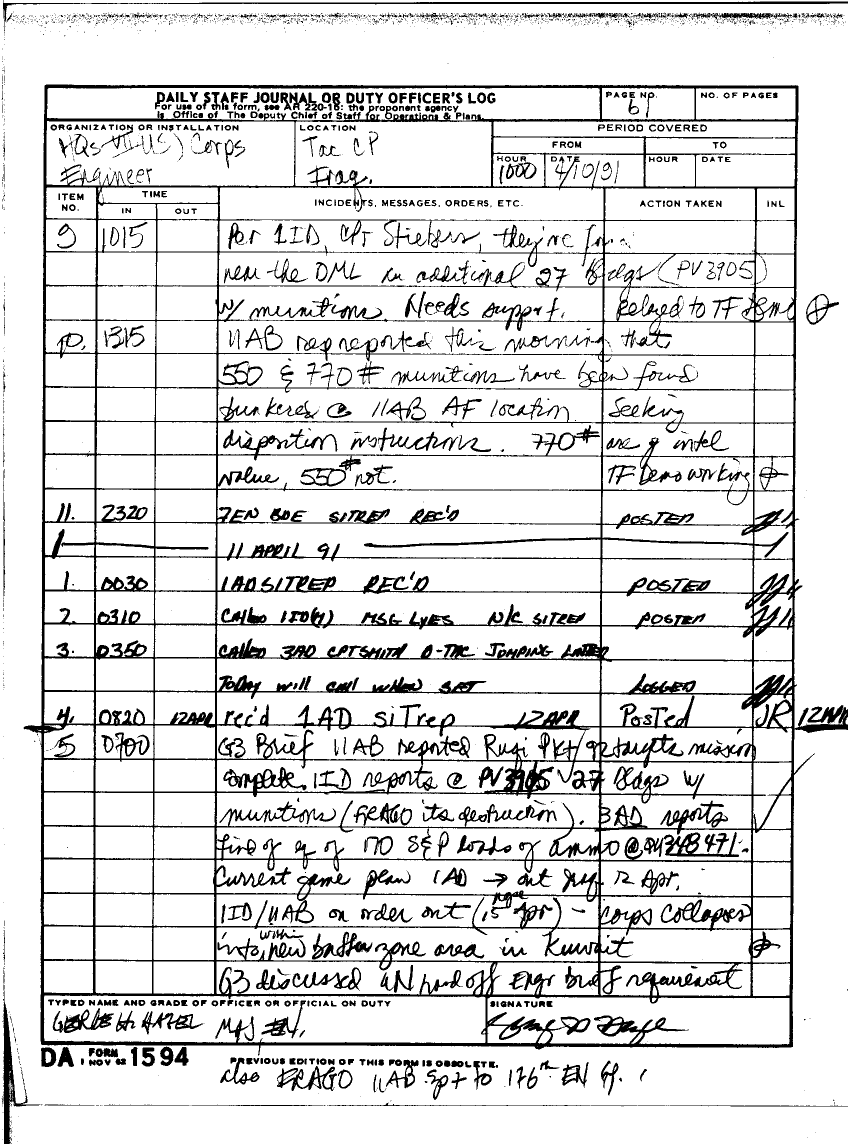 DAILY STAFF JOURNAL OR DUTY OFFICER'S LOG
For use of this form, see AR 220-15; the proponent agency
is Office of The Deputy Chief of Staff for Operations & Plans.
PAGE NO.
61
NO. OF PAGES
ORGANIZATION OR INSTALLATION
HQs VII(US) Corps
Engineer
LOCATION
Tac CP
Iraq.
PERIOD COVERED
FROM
TO
HOUR
1000
DATE
4/10/91
HOUR
DATE
ITEM NO.
TIME
IN
OUT
INCIDENTS, MESSAGES, ORDERS, ETC.
ACTION TAKEN
INL
9 1015 Per 1ID, CPT Stiebers, they've found
near the DML an additional 27 Bldgs (PV3905)
w/ munitions. Needs support. Relayed to TF Demo
10. 1315 11AB rep reported this morning that
550 & 770# munitions have been found
bunkers @ 11AB AF location Seeking
disposition instructions. 770# are of intel
value, 550# not. TF Demo working
11. 2320 7EN BDE SITREP REC'D POSTED
11 APRIL 91
1. 0030 1AD SITREP REC'D POSTED
2. 0310 CALLED 1ID(F) MSG LYES N/C SITREP POSTED
3. 0350 CALLED 3AD CPT SMITH D-TAC JUMPING LATER
TODAY WILL CALL WHEN SET LOGGED
4. 0820 12APR rec'd 1AD siTrep 12APR PosTed JR 12APR
5 0700 G3 Brief 11AB reported Rugi Pkt/92 targets mission
complete. 1ID reports @ PV3905 27 Bldgs w/
munitions (FRAGO its destruction). 3AD reports
find of eq of 170 S&P loads of ammo @ 348471.
Current game plan 1AD → out 12 Apr.
1ID/11AB on order out (15 Apr) - corps collapses
into, within new buffer zone area in Kuwait
G3 discussed UN hand off Engr brief requirement
TYPED NAME AND GRADE OF OFFICER OR OFFICIAL ON DUTY
GEORGE H. HAZEL MAJ, EN.
SIGNATURE
DA FORM 1 NOV 62 1594
PREVIOUS EDITION OF THIS FORM IS OBSOLETE.
also FRAGO 11AB spt to 176th EN Gp.